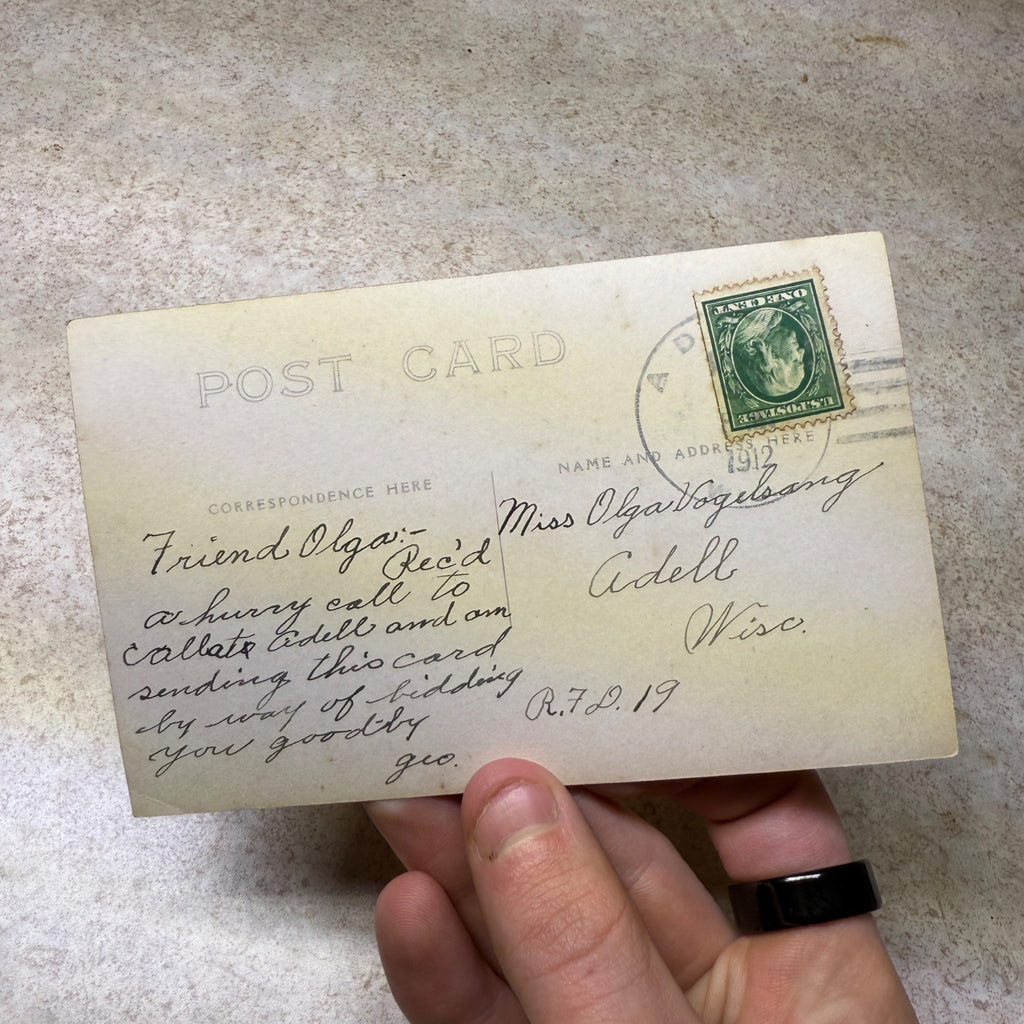 POST CARD
ONE CENT
U.S. POSTAGE
AD
1912
CORRESPONDENCE HERE
NAME AND ADDRESS HERE
Friend Olga:-
Rec'd
a hurry call to
call at Adell and am
sending this card
by way of bidding
you good-by
geo.
Miss Olga Vogelsang
Adell
Wisc.
R.F.D. 19